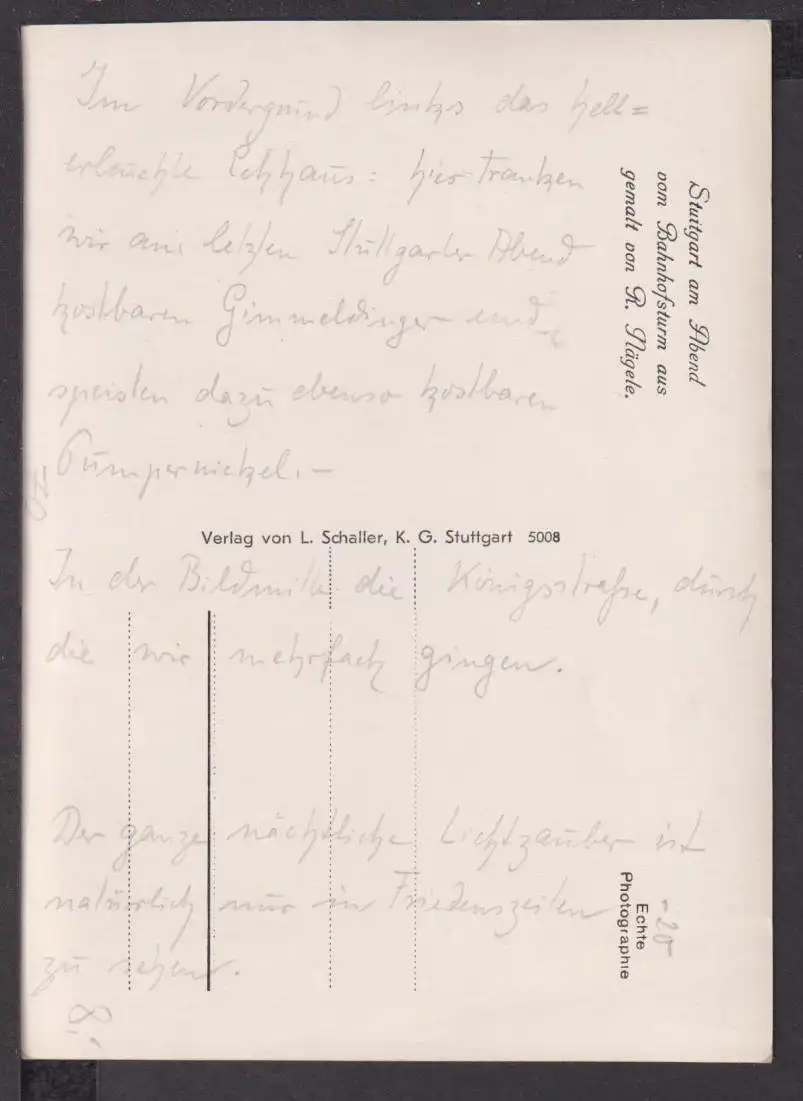 Im Vordergrund links das hell=
erleuchte Eckhaus: hier tranken
wir am letzten Stuttgarter Abend
kostbaren Gimmeldinger und
speisten dazu ebenso kostbaren
Pumpernickel. –
Stuttgart am Abend
vom Bahnhofsturm aus
gemalt von R. Nägele.
Verlag von L. Schaller, K. G. Stuttgart 5008
In der Bildmitte die Königsstraße, durch
die wir mehrfach gingen.
Der ganze nächtliche Lichtzauber ist
natürlich nur in Friedenszeiten
zu sehen.
Echte
Photographie
-20
8.-